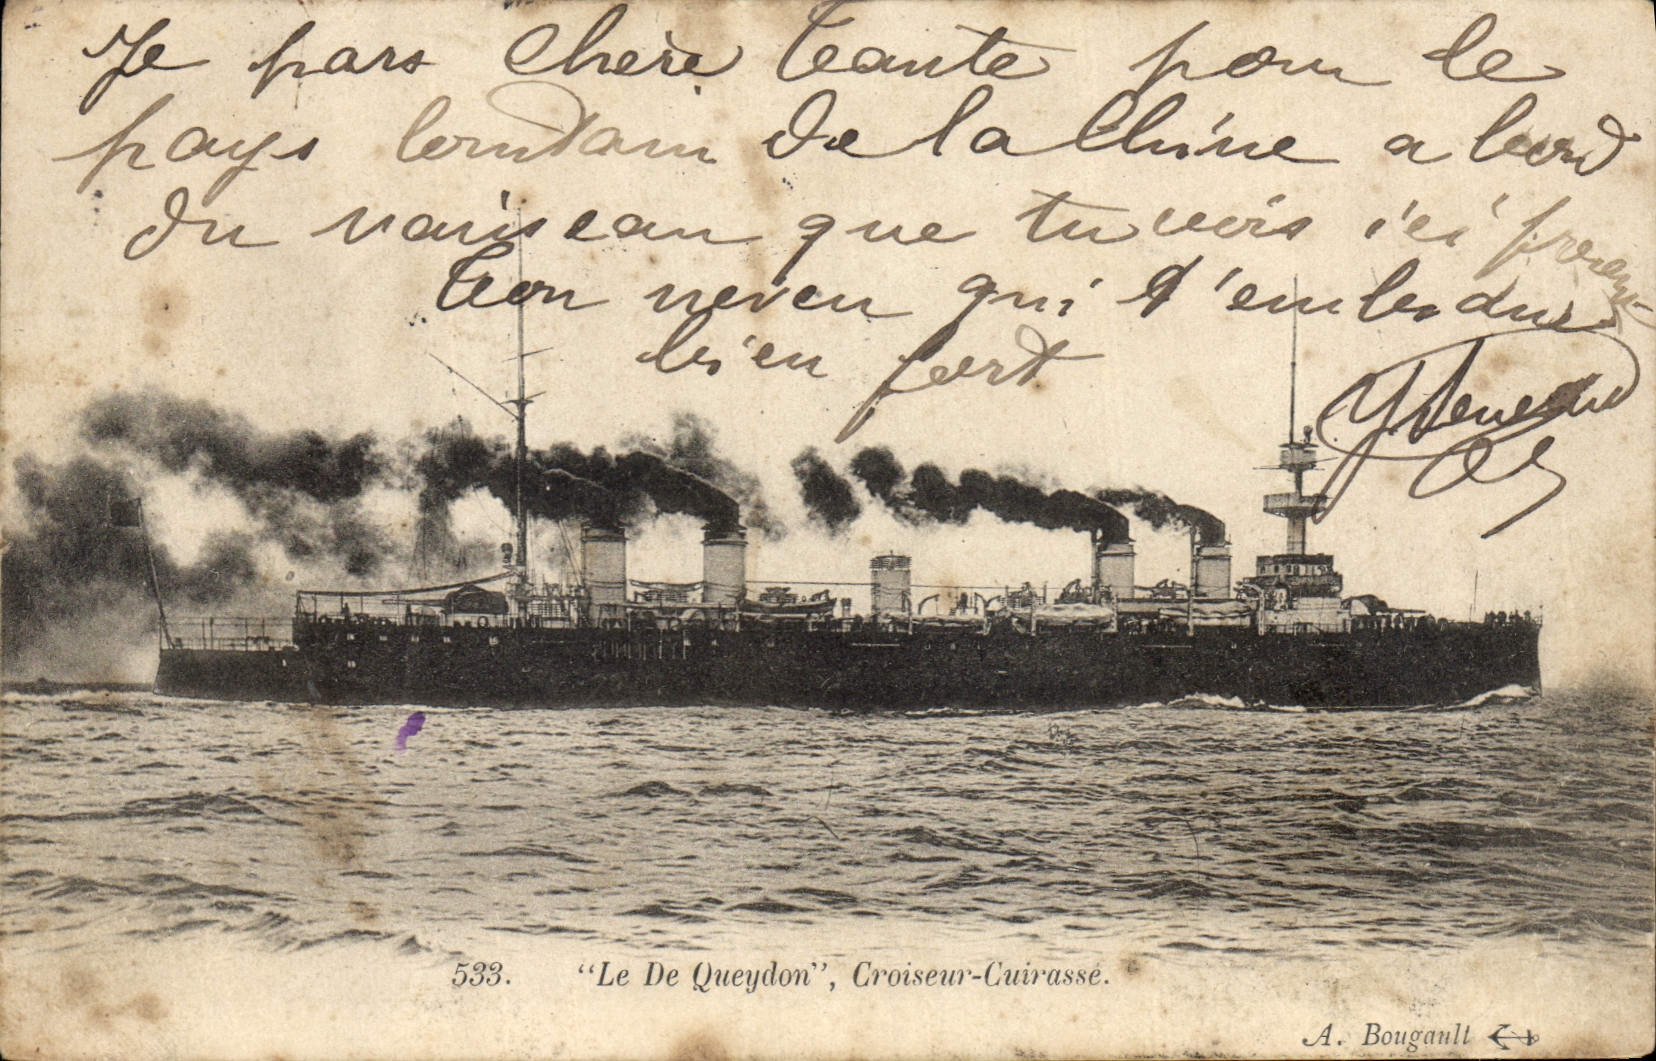 Je pars Chère tante pour le
pays lointain de la Chine a bord
du vaisseau que tu vois ici
ton neveu qui t'embrasse
bien fort
533. "Le De Queydon", Croiseur-Cuirassé.
A. Bougault